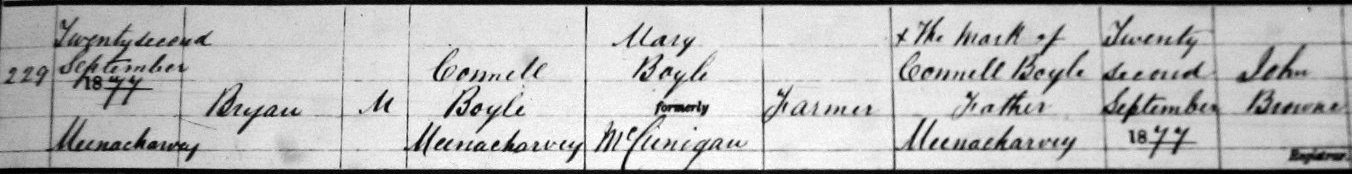 229
Twentysecond
September
1877
Meenacharvey
Bryan
M
Connell
Boyle
Meenacharvey
Mary
Boyle
formerly
McGinigan
Farmer
x The Mark of
Connell Boyle
Father
Meenacharvey
Twenty
second
September
1877
John
Browne
Registrar.